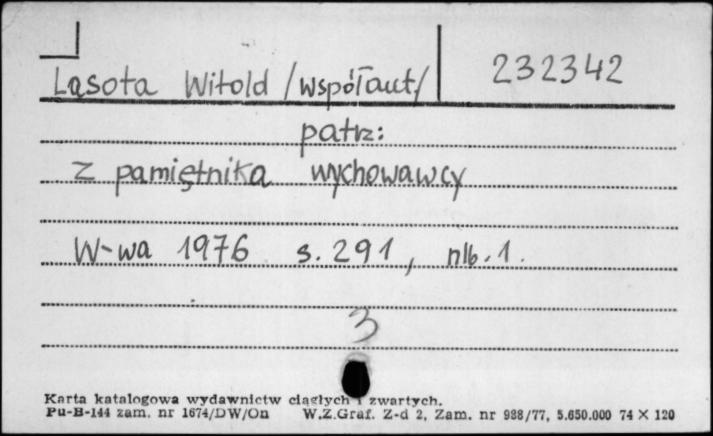 Ląsota Witold /współaut/ 232342
patrz:
Z pamiętnika wychowawcy
W-wa 1976 s. 291, nlb. 1.
3
Karta katalogowa wydawnictw ciągłych i zwartych.
Pu-B-144 zam. nr 1674/DW/On W.Z.Graf. Z-d 2, Zam. nr 988/77, 5.650.000 74 × 120